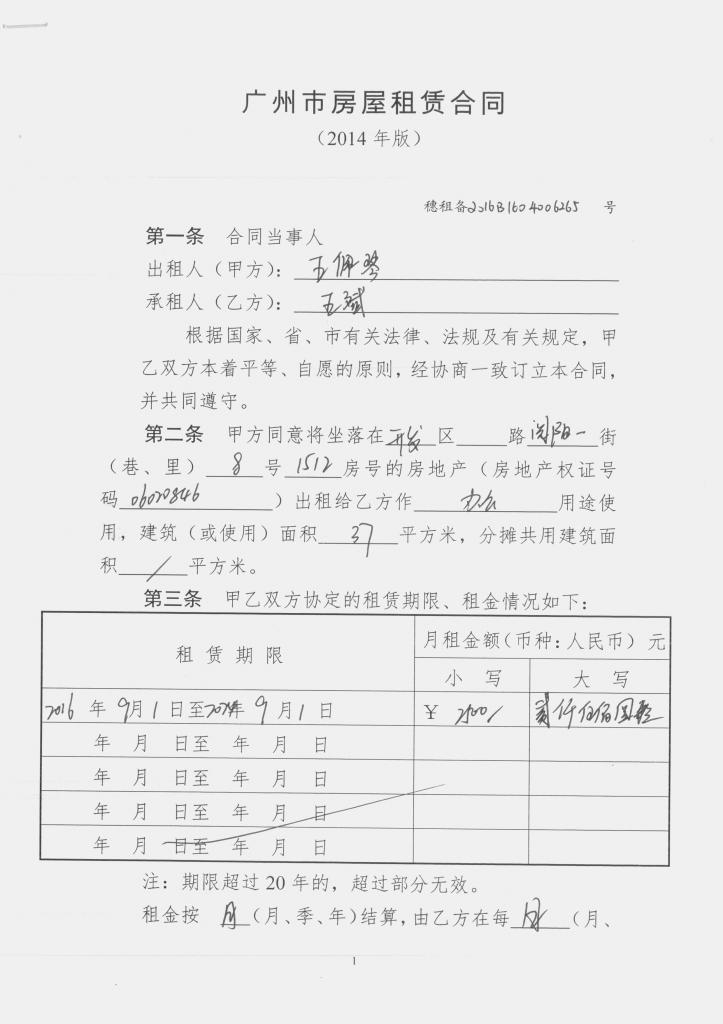 广州市房屋租赁合同
（2014 年版）
穗租备2016B1604006265 号
第一条 合同当事人
出租人（甲方）：王佩琴
承租人（乙方）：王斌
根据国家、省、市有关法律、法规及有关规定，甲
乙双方本着平等、自愿的原则，经协商一致订立本合同，
并共同遵守。
第二条 甲方同意将坐落在开发区 路浏阳一街
（巷、里）8号1512房号的房地产（房地产权证号
码06020846）出租给乙方作办公用途使
用，建筑（或使用）面积37平方米，分摊共用建筑面
积/平方米。
第三条 甲乙双方协定的租赁期限、租金情况如下：
租赁期限
月租金额（币种：人民币）元
小写 大写
2016年9月1日至 年9月1日 ¥ 2500/ 贰仟伍佰圆整
年 月 日至 年 月 日
年 月 日至 年 月 日
年 月 日至 年 月 日
年 月 日至 年 月 日
注：期限超过 20 年的，超过部分无效。
租金按月（月、季、年）结算，由乙方在每月（月、
1